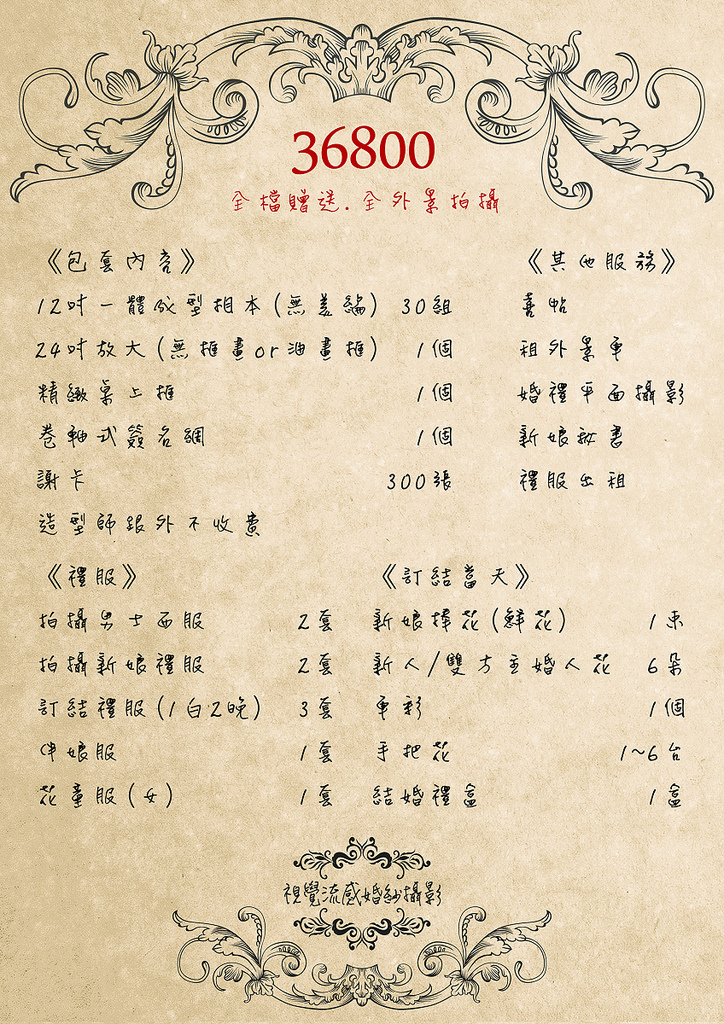 36800
全檔贈送.全外景拍攝
《包套內容》
12吋一體成型相本(無差編) 30組
24吋放大(無框畫or油畫框) 1個
精緻桌上框 1個
卷軸式簽名綢 1個
謝卡 300張
造型師跟外不收費
《其他服務》
喜帖
租外景車
婚禮平面攝影
新娘秘書
禮服出租
《禮服》
拍攝男士西服 2套
拍攝新娘禮服 2套
訂結禮服(1白2晚) 3套
伴娘服 1套
花童服(女) 1套
《訂結當天》
新娘捧花(鮮花) 1束
新人/雙方主婚人花 6朵
車彩 1個
手把花 1~6台
結婚禮盒 1盒
視覺流感婚紗攝影